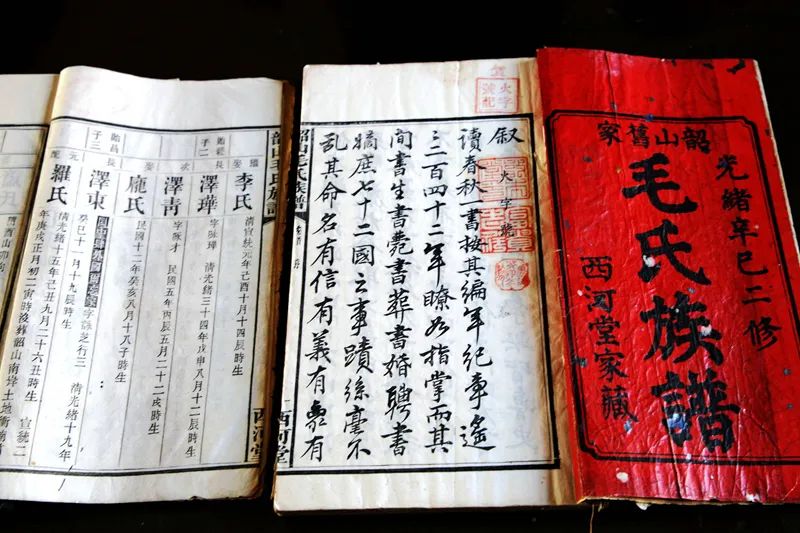 韶山舊家
光緒辛巳二修
毛氏族譜
西河堂家藏
火字號記
火字號
叙
讀春秋一書按其編年紀事遙
〻二百四十二年瞭如指掌而其
間書生書薨書葬書婚聘書
嫡庶七十二國之事蹟絲毫不
亂其命名有信有義有象有
韶山毛氏族譜
卷首
西河堂
韶山毛氏族譜
西河堂
李氏
清宣統元年己酉十月十四辰時生
長子二
澤華
字詠瑋 清光緒三十四年戊申八月十二辰時生
次
澤青
字詠才 民國五年丙辰五月二十二戌時生
娶
龐氏
民國十二年癸亥八月十八子時生
貽昌長子三
澤東
字詠芝行三 清光緒十九年
癸巳十一月十九辰時生
元配
羅氏
清光緒十五年己丑九月二十六丑時生 宣統二
年庚戌正月初二寅時沒葬韶山南